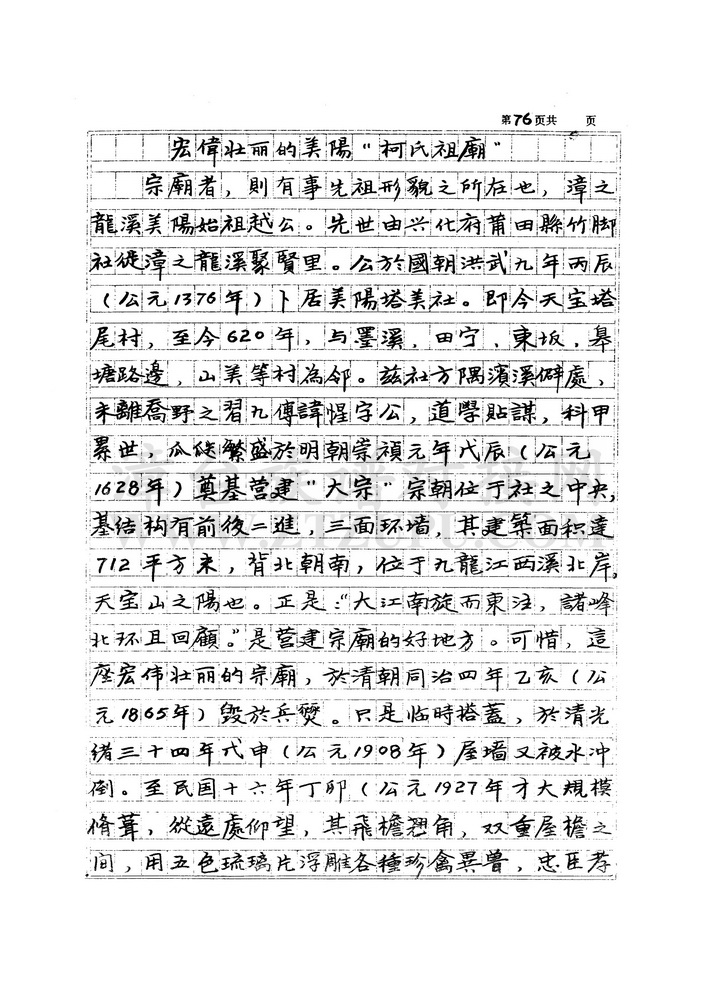 第76页共　　页
宏偉壮丽的美陽"柯氏祖廟"
宗廟者，則有事先祖形貌之所在也，漳之
龍溪美陽始祖越公。先世由兴化府莆田縣竹脚
社徙漳之龍溪聚賢里。公於國朝洪武九年丙辰
（公元1376年）卜居美陽塔美社。即今天宝塔
尾村，至今620年，与墨溪，田宁、東坂，皋
塘路邊，山美等村為邻。茲社方隅濱溪僻處，
未離喬野之習九傳諱惺字公，道學貽謀，科甲
累世，瓜徙繁盛於明朝崇禎元年戊辰（公元
1628年）奠基营建"大宗"宗朝位于社之中央，
基结构有前後二進，三面环墙，其建築面积達
712平方来，背北朝南，位于九龍江西溪北岸，
天宝山之陽也。正是："大江南旋而東注，諸峰
北环且回顧。"是营建宗廟的好地方。可惜，這
座宏伟壮丽的宗廟，於清朝同治四年乙亥（公
元1865年）毁於兵燹。只是临時搭蓋，於清光
绪三十四年代申（公元1908年）屋墙又被水冲
倒。至民国十六年丁卯（公元1927年才大規模
脩葺，從遠處仰望，其飛檐翘角，双重屋檐之
间，用五色琉璃片浮雕各種珍禽異兽，忠臣孝